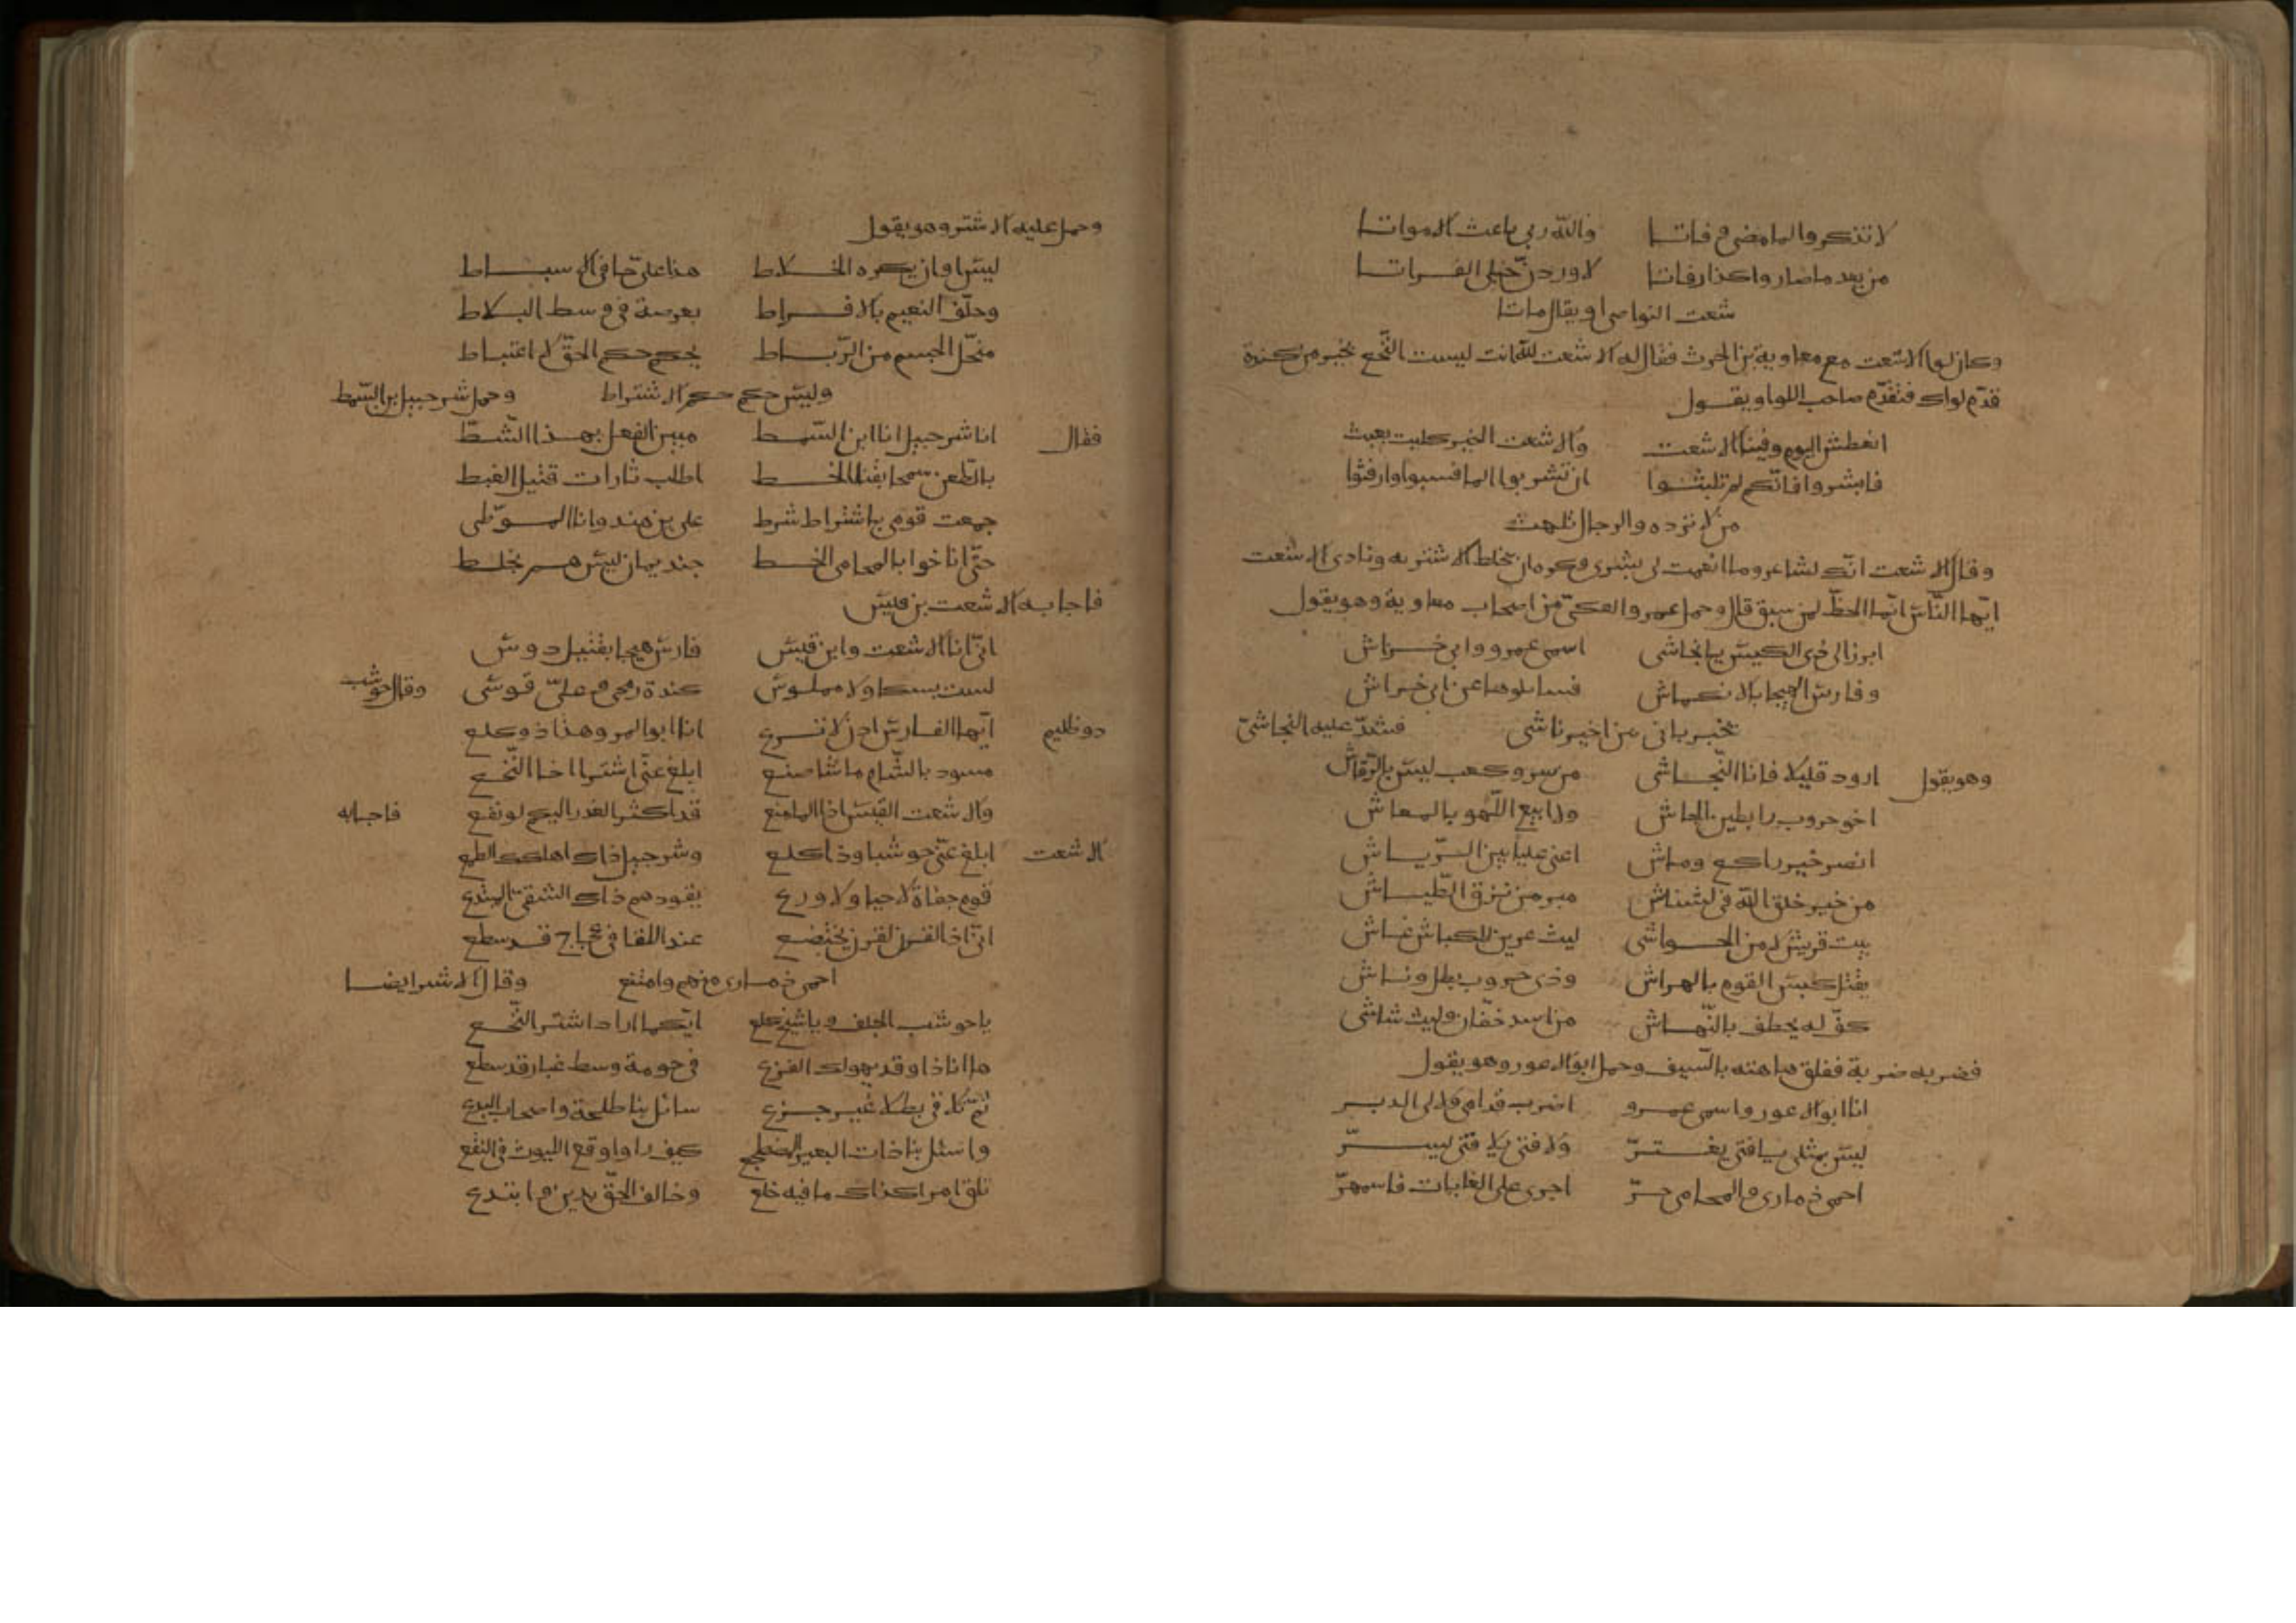 لا تذكروا لما مضى وفاتا والله ربى باعث الامواتا
من بعد ما صاروا كذا رفاتا لاوردن خيلى الفراتا
شعث النواصى او يقال ماتا
وكان لوا الاشعث مع معاوية بن الحرث فقال له الاشعث لله انت ليست النخع بخير من كندة
قدم لواك فتقدم صاحب اللوا ويقول
انعطش اليوم وفينا الاشعث والاشعث الخير كليث يعبث
فابشروا فانكم لم تلبثوا ان تشربوا الما فسبوا وارفثوا
من لا نرده والرجال تلهث
وقال الاشعث انك لشاعر وما انعمت لى بشرى وكره ان يخلط الاشتر به ونادى الاشعث
ايها الناس انما الحظ لمن سبق قال وحمل عمرو العكى من اصحاب معاوية وهو يقول
ابرز الى ذى الكبش يا نجاشى اسمى عمرو وابى خراش
وفارس الهيجا بالانكماش
تخبر بانى عن اخير ناشى فشد عليه النجاشى
وهو يقول ارود قليلا فانا النجاشى من سرو كعب ليس بالرقاش
اخو حروب رابطين الجاش ولا ابيع اللهو بالمعاش
انصر خير راكع وماش اعنى عليا بين الرياش
من خير خلق الله فى مبر من نزق الطياش
بيت قريش لا من الحواشى ليث عرين للكباش غاش
يقتل كبش القوم بالهراش وذى حروب بطل وناش
من اسد خفان وليث شاشى
فضربه ضربة ففلق هامته بالسيف وحمل ابو الاعور وهو يقول
انا ابو الاعور واسمى عمرو اضرب قدامى ولا لى الدبر
ليس بمثلى يا فتى يغتر ولا فتى
احمى ذمارى والمحامى حر اجرى على الغايات فاسمهر
وحمل عليه الاشتر وهو يقول
لست وان يكره الخلاط
وحلف النعيم بالافراط بعرصة فى وسط البلاط
منحل الجسم من الرباط يحكم حكم الحق لا اعتباط
وليس حكم حكم الاشتراط وحمل شرحبيل بن السمط
فقال انا شرحبيل انا ابن السمط مبين الفعل بهذا الشط
بالطعن سمحا بقنا الخط اطلب ثارات قتيل القبط
جمعت قومى باشتراط شرط على بن هند وانا الموطى
حتى اناخوا بالمحامى الخط جند يمان ليس هم بخلط
فاجابه الاشعث بن قيس
انى انا الاشعث وابن قيس فارس هيجا بقتيل دوس
كندة رمحى وعلى قوسى وقال حوشب
ذو ظليم ايها الفارس ادن لا ترع انا ابو المر وهذا ذو كلع
مسود بالشام ما شا صنع ابلغ عنى اشترا اخا النخع
والاشعث القيس اذا الما منع قد اكثر الغدر اليكم لو نفع فاجابه
الاشعث ابلغ عنى حوشبا وذا كلع وشرحبيل ذاك اهلكه الطمع
قوم جفاة لا حيا ولا ورع يقودهم ذاك الشقى المبتدع
انى اذا القرن لقرن يختضع عند اللقا فى عجاج قد سطع
احمى ذمارى منهم وامتنع وقال الاشتر ايضا
يا حوشب الجلف ويا شيخ كلع ايكما اراد اشتر النخع
ها انا ذا وقد يهولك الفزع فى حومة وسط غبار قد سطع
ثم تلاقى بطلا غير جزع سائل بنا طلحة واصحاب البدع
واسئل بنا ذات البعير المضطجع كيف راوا وقع الليوث فى النقع
تلق امرا كذاك ما فيه خلع وخالف الحق بدين وابتدع